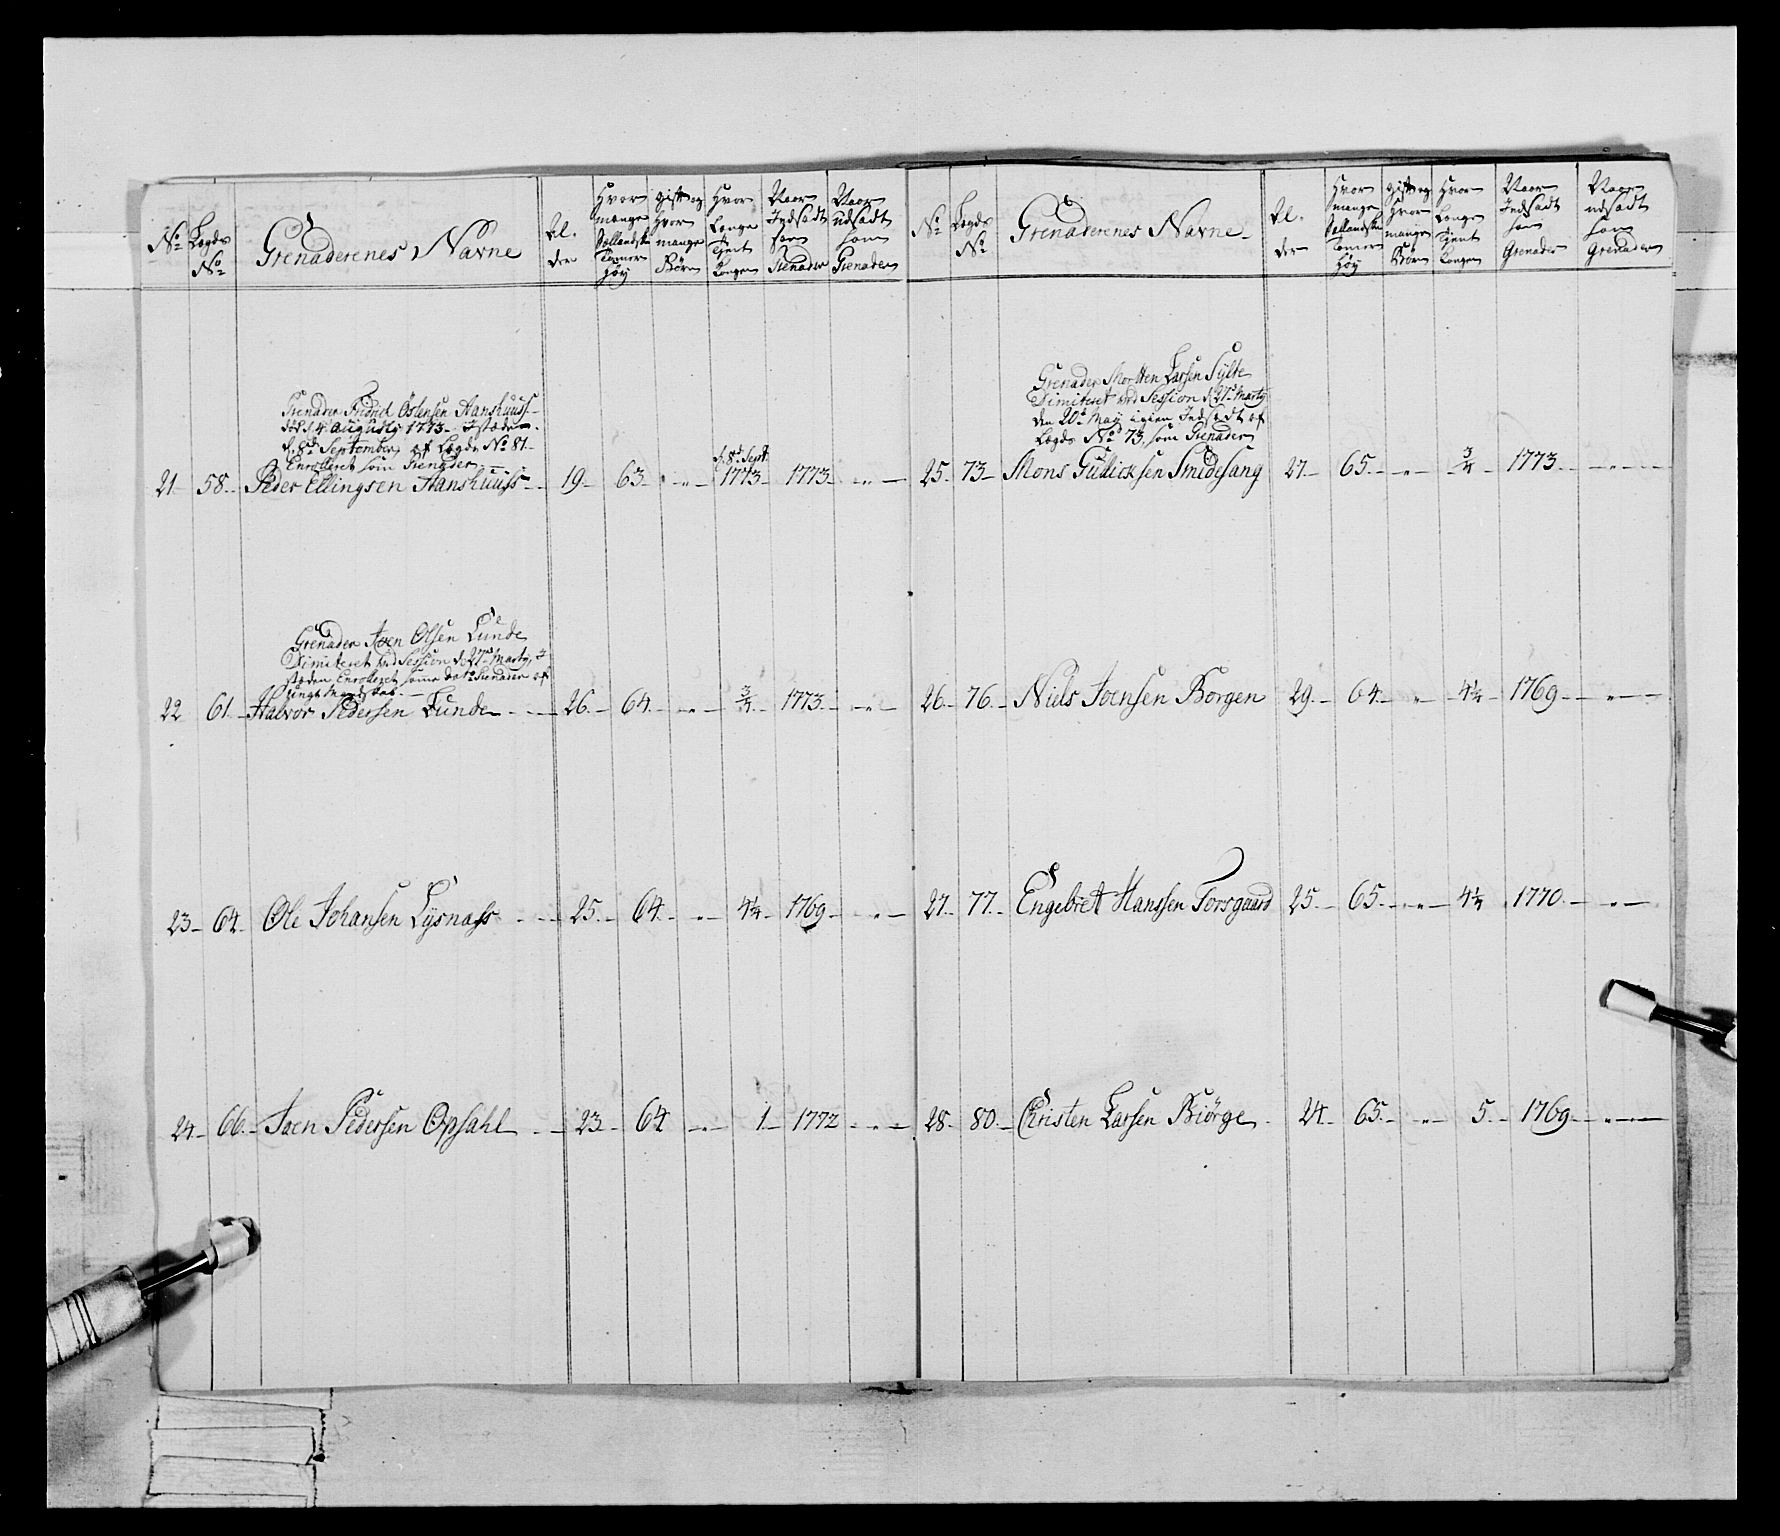 No Lægds No Grenaderenes Navne Al. der Hvor mange Sællandske Tommer Høy gift og Hvor mange Børn Hvor Længe Tient Kongen Naar Indsadt som Grenader Naar udsadt som Grenader
Grenader Østensen Aanshuuss
d. 4 Augusty 1773
d. 8de September, af Lægds No 81
Enrolleret som Grenader
d. 8de Sept.
21 58 Peder Ellingsen Aanshuuss 19 63 " 1773 1773 "
Grenader Joen Olsen Lunde
Dimiteret ved Session d. 27de Marty, i
steden Enrolleret som Grenader af
ungt Mandskab
22 61 Halvor Pedersen Lunde 26 64 " 3/4 1773 "
23 64 Ole Johansen Lysnass 25 64 " 4 1/4 1769 "
24 66 Joen Pedersen Opsahl 23 64 " 1 1772 "
No Lægds No Grenaderenes Navne Al. der Hvor mange Sællandske Tommer Høy gift og Hvor mange Børn Hvor Længe Tient Kongen Naar Indsadt som Grenader Naar udsadt som Grenader
Grenader Morten Larsen Sylte
Dimiteret ved Session d. 27de Marty
den 20de May igien Indsadt af
Lægds No 73, som Grenader
25 73 Mons Gullicksen Smedesang 27 65 " 3/4 1773 "
26 76 Niels Joensen Borgen 29 64 " 4 1/4 1769 "
27 77 Engebret Hanssen Forsgaard 25 65 " 4 1/4 1770 "
28 80 Christen Larsen Biörge 24 65 " 5 1769 "